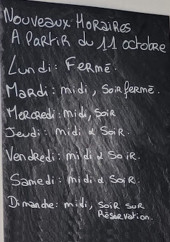 Nouveaux Horaires
A Partir du 11 octobre
Lundi: Fermé.
Mardi: midi, Soir fermé.
Mercredi: midi, Soir
Jeudi: midi & Soir.
Vendredi: midi & Soir.
Samedi: midi & Soir.
Dimanche: midi, Soir sur
Réservation.